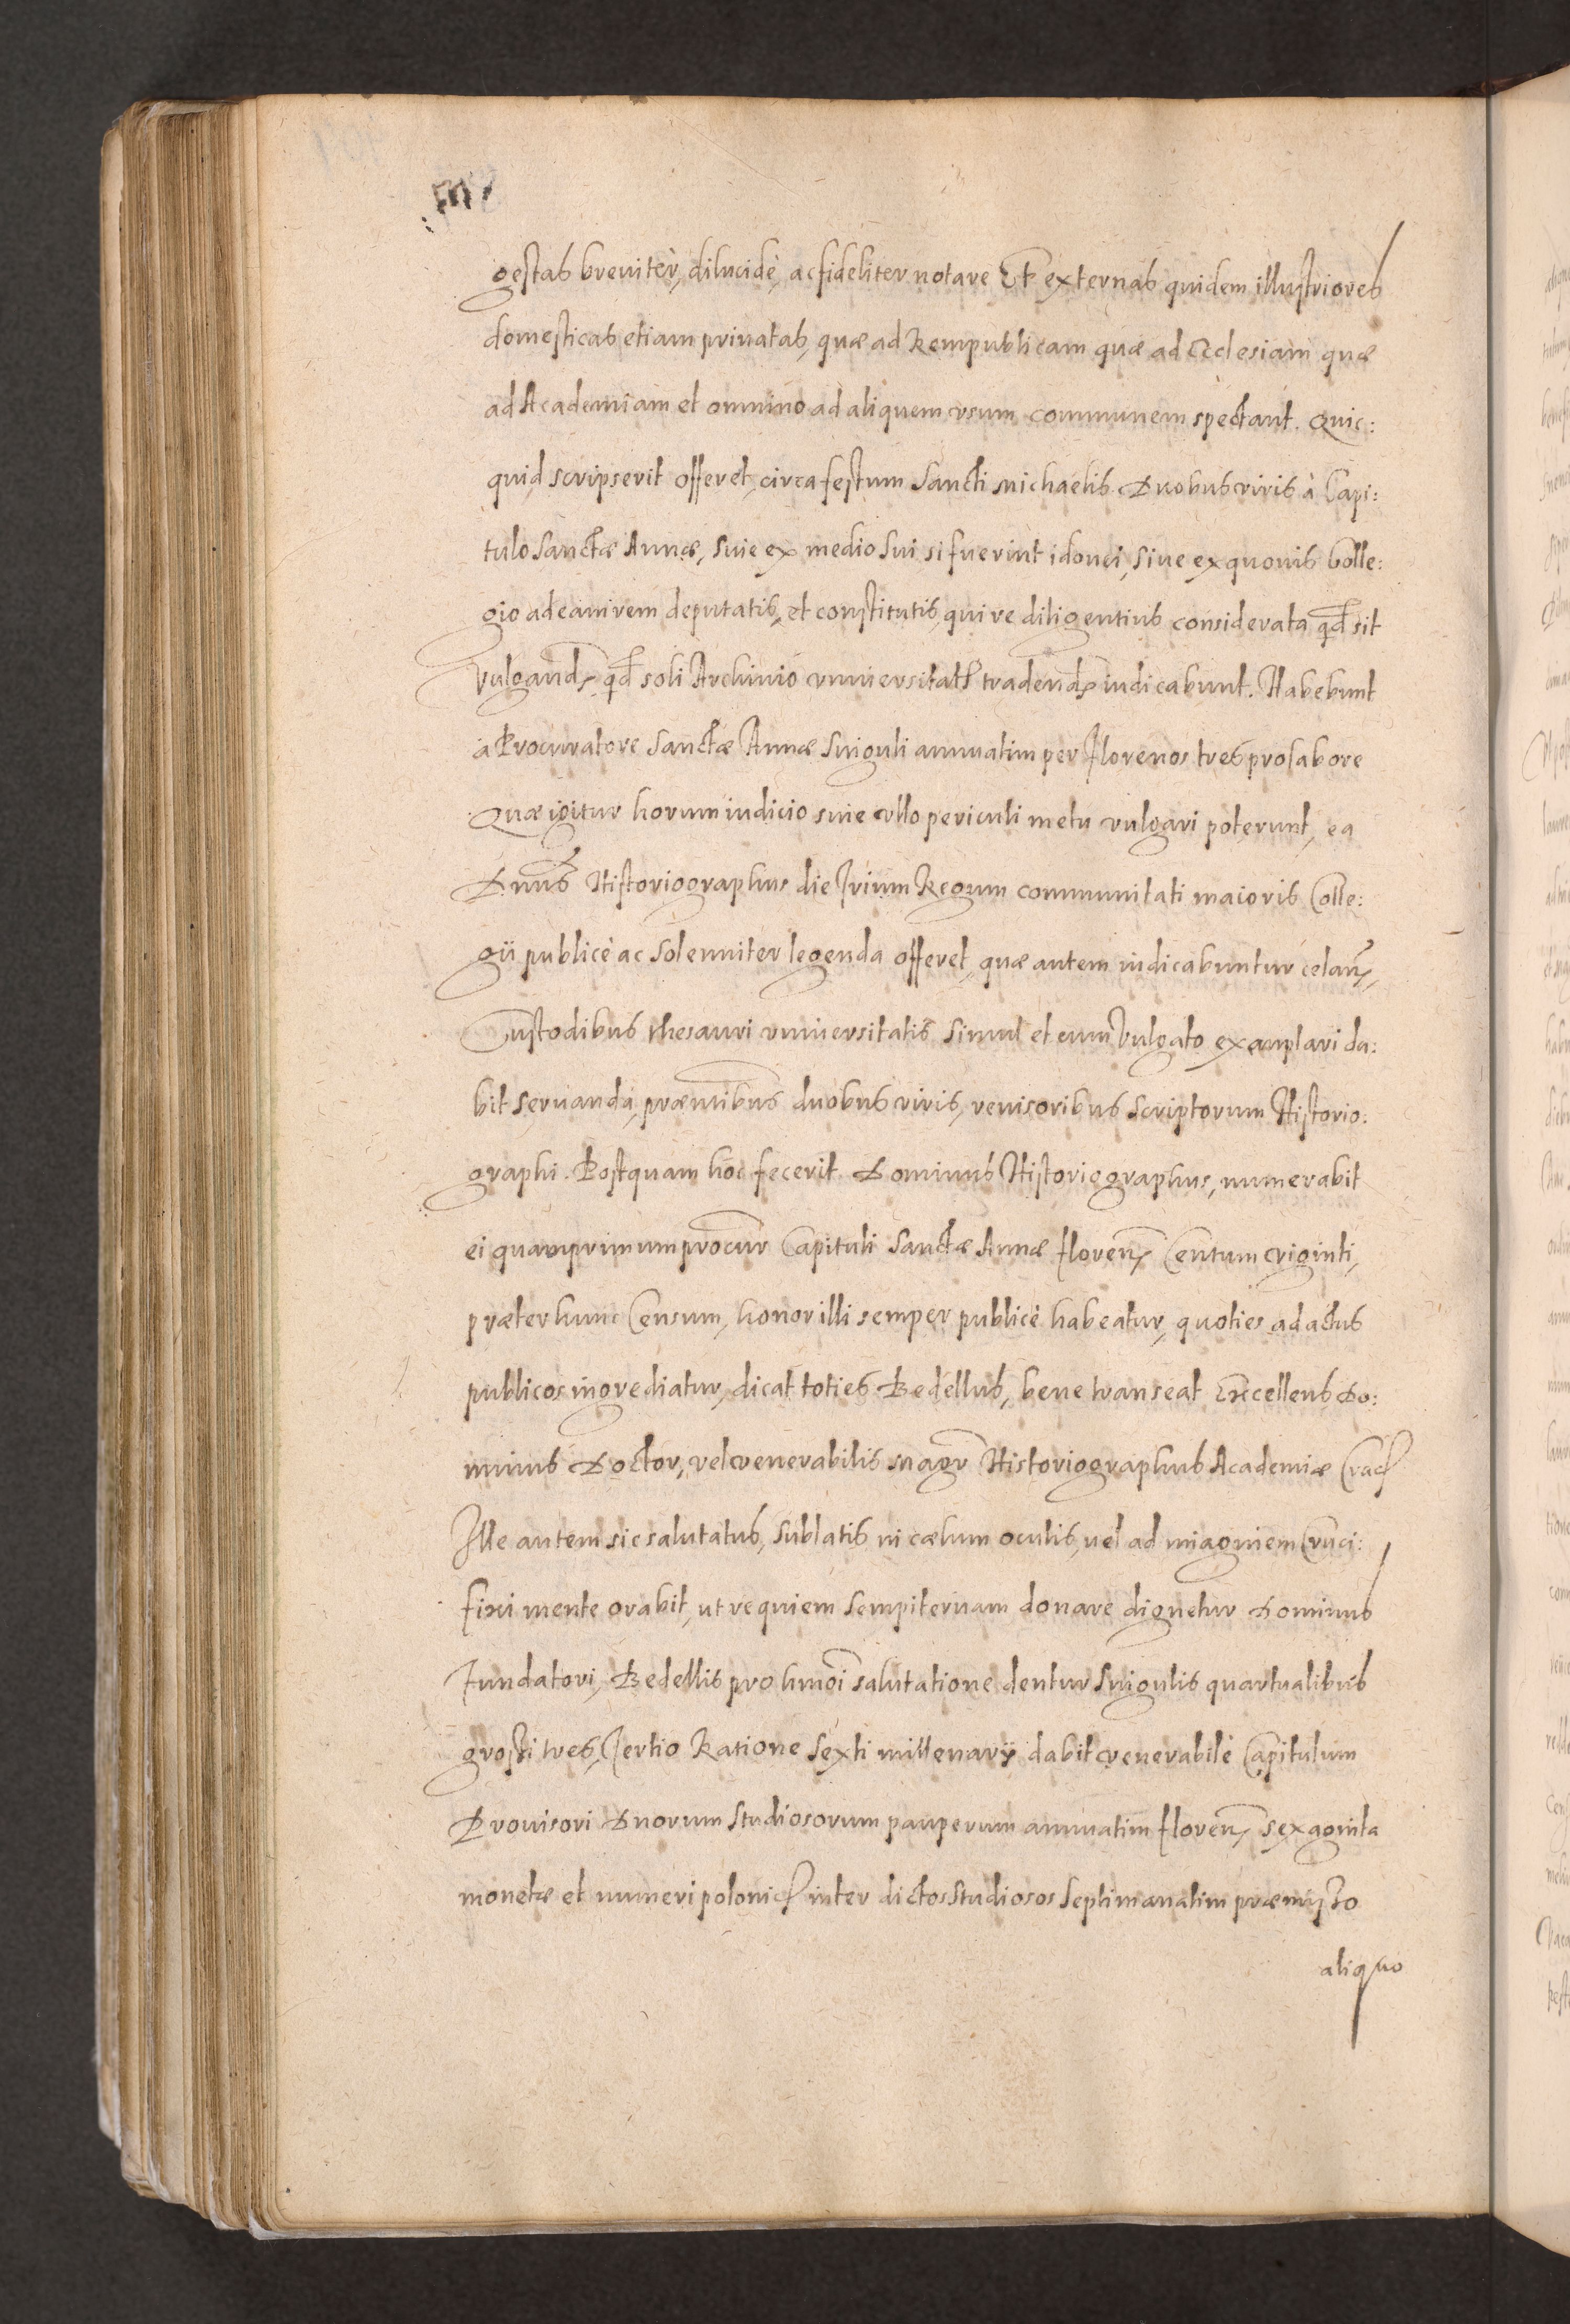 gestas breuiter, dilucidè, ac fideliter notare Et externas quidem illustriores
domesticas etiam priuatas, quæ ad Rempublicam quæ ad Ecclesiam quæ
ad Academiam et omnino ad aliquem vsum communem spectant. Quic:
quid scripserit offeret, circa festum Sancti Michaelis Duobus viris à Capi:
tulo Sanctæ Annæ, siue ex medio sui si fuerint idonei, siue ex quouis Colle:
gio ad eam rem deputatis, et constitutis, qui re diligentius considerata qd sit
vulgand qd soli Archiuio vniuersitat tradend iudicabunt. Habebunt
a Procuratore Sanctæ Annæ singuli annuatim per Florenos tres pro labore
Quæ igitur horum iudicio sine vllo periculi metu vulgari poterunt, ea
Dnus Historiographus die Trium Regum communitati maioris Colle:
gij publicè ac solenniter legenda offeret, quæ autem iudicabuntur celan
Custodibus thesauri vniuersitatis simul et cum vulgato exemplari da:
bit seruanda, præntibus duobus viris, reuisoribus scriptorum Historio:
graphi. Postquam hoc fecerit Dominus Historiographus, numerabit
ei quamprimum procur Capituli Sanctæ Annæ floren Centum viginti,
præter hunc Censum, honor illi semper publicè habeatur, quoties ad actus
publicos ingrediatur, dicat toties Bedellus, bene transeat Excellens Do:
minus Doctor, vel venerabilis Magr Historiographus Academiæ Crac
Ille autem sic salutatus, sublatis in cælum oculis, uel ad imaginem Cruci:
fixi mente orabit, ut requiem sempiternam donare dignetur Dominus
Fundatori, Bedellis pro hmoi salutatione dentur singulis quartualibus
grossi tres, Tertio Ratione sexti millenarij dabit venerabile Capitulum
Prouisori Dnorum Studiosorum pauperum annuatim floren sexaginta
monetæ et numeri polonic inter dictos Studiosos septimanatim præmisso
aliquo